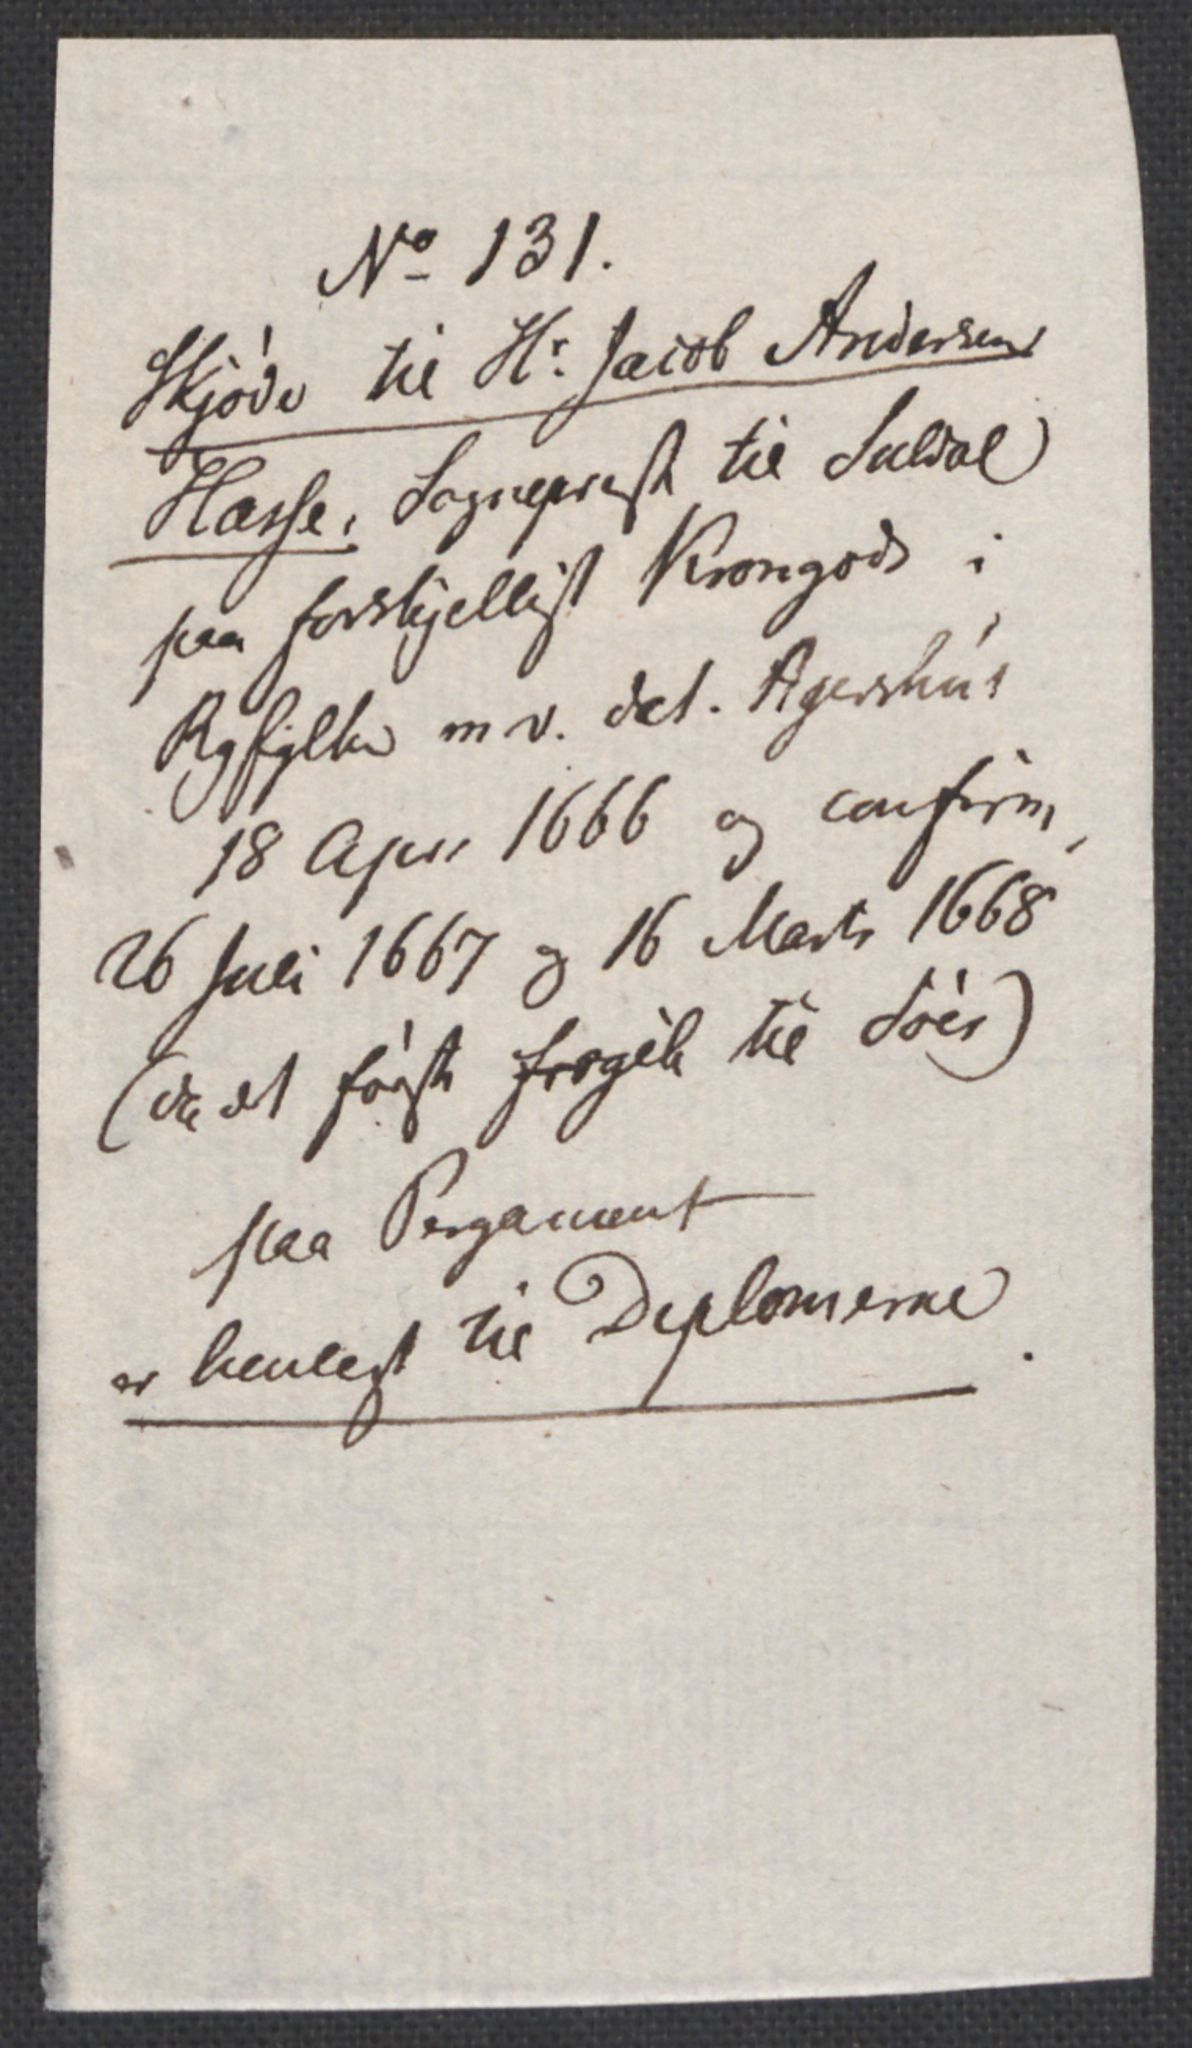 No 131.
Skjöde til Hr. Jacob Andersens
Hasse, Sognepræst til Suldal
paa forskjelligt Krongods i
Ryfylke m v. dat. Agershus
18 Apr 1666 og confirm,
26 Juli 1667 og 16 Marts 1668
(da det först til
paa Pergament
er henlegt til Diplomerne.